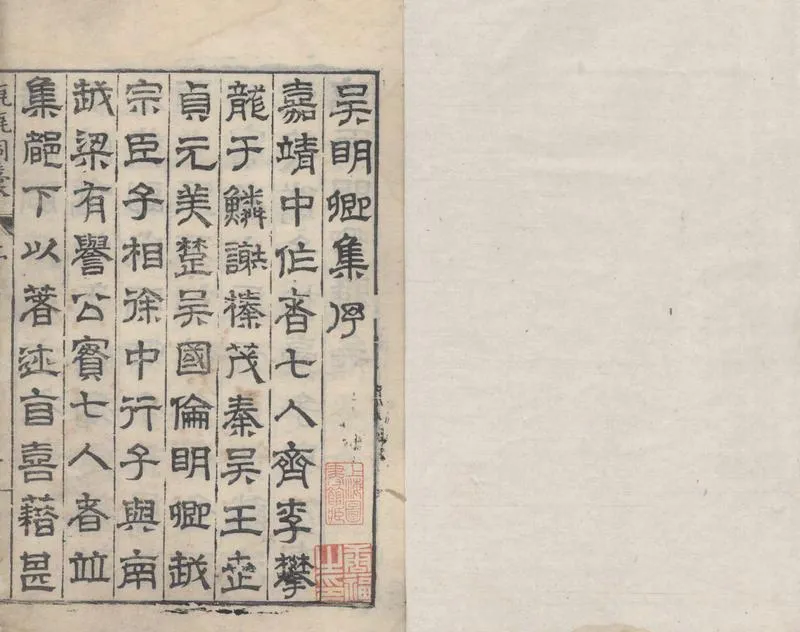 吳明卿集序
嘉靖中作者七人齊李攀
龍于鱗謝榛茂秦吳王世
貞元美楚吳國倫明卿越
宗臣子相徐中行子與南
越梁有譽公實七人者竝
集都下以著述自喜藉甚
上海圖書館藏